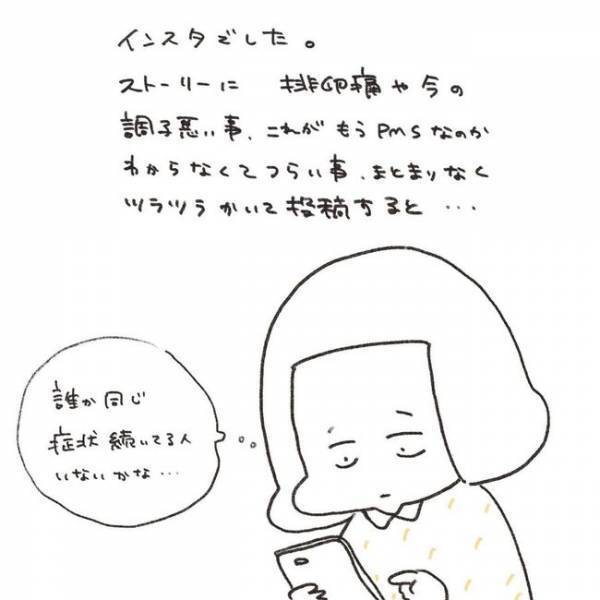 インスタでした。
ストーリーに 排卵痛や今の
調子悪い事、これがもうPMSなのか
わからなくてつらい事、まとまりなく
ツラツラかいて投稿すると…
誰か同じ
症状続いてる人
いないかな…